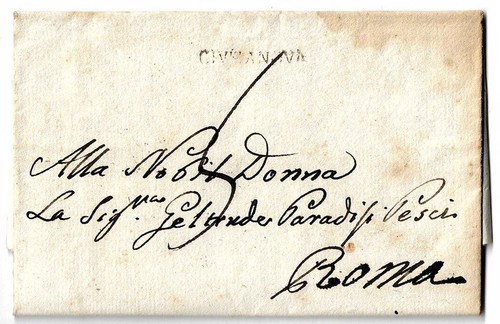 CIVITANOVA
Alla Nobil Donna
La Sig.ra Geltrude Paradisi Pesci
Roma